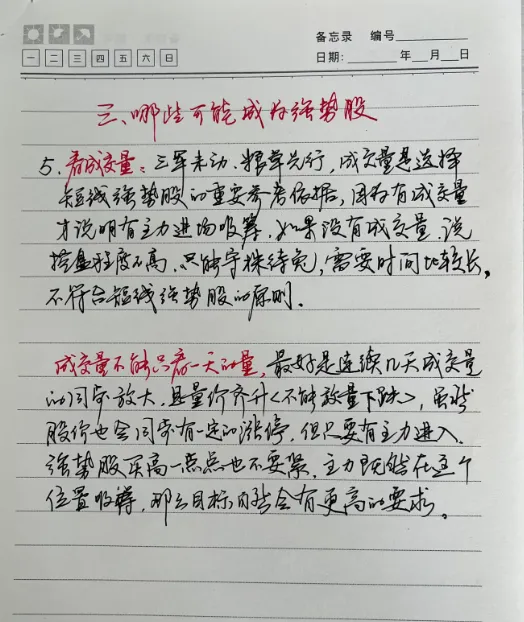 备忘录 编号
一 二 三 四 五 六 日
日期: 年 月 日
三、哪些可能成为强势股
5、看成交量：三军未动、粮草先行，成交量是选择
短线强势股的重要参考依据，因为有成交量
才说明有主力进场吸筹，如果没有成交量，说
控盘程度不高，只能守株待兔，需要时间比较长，
不符合短线强势股的原则．
成交量不能只看一天的量，最好是连续几天成交量
的同步放大，且量价齐升<不能放量下跌>，虽然
股价也会同步有一定的涨停，但只要有主力进入，
强势股买高一点点也不要紧，主力既然在这个
位置吸筹，那么目标自然会有更高的要求。